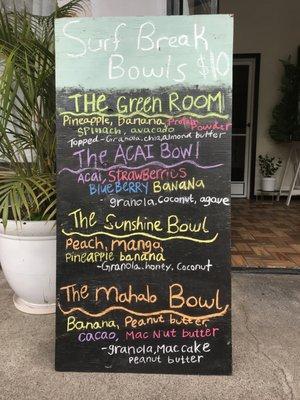 Surf Break
Bowls $10
The Green Room
Pineapple, banana, Protein Powder
Spinach, avacado
Topped - Granola, chia, almond butter
The Acai Bowl
Acai, Strawberries
Blueberry Banana
- granola, coconut, agave
The Sunshine Bowl
Peach, Mango,
Pineapple banana
- Granola, honey, coconut
The Mahalo Bowl
Banana, Peanut butter
cacao, Mac Nut butter
- granola, Mac cake
Peanut butter